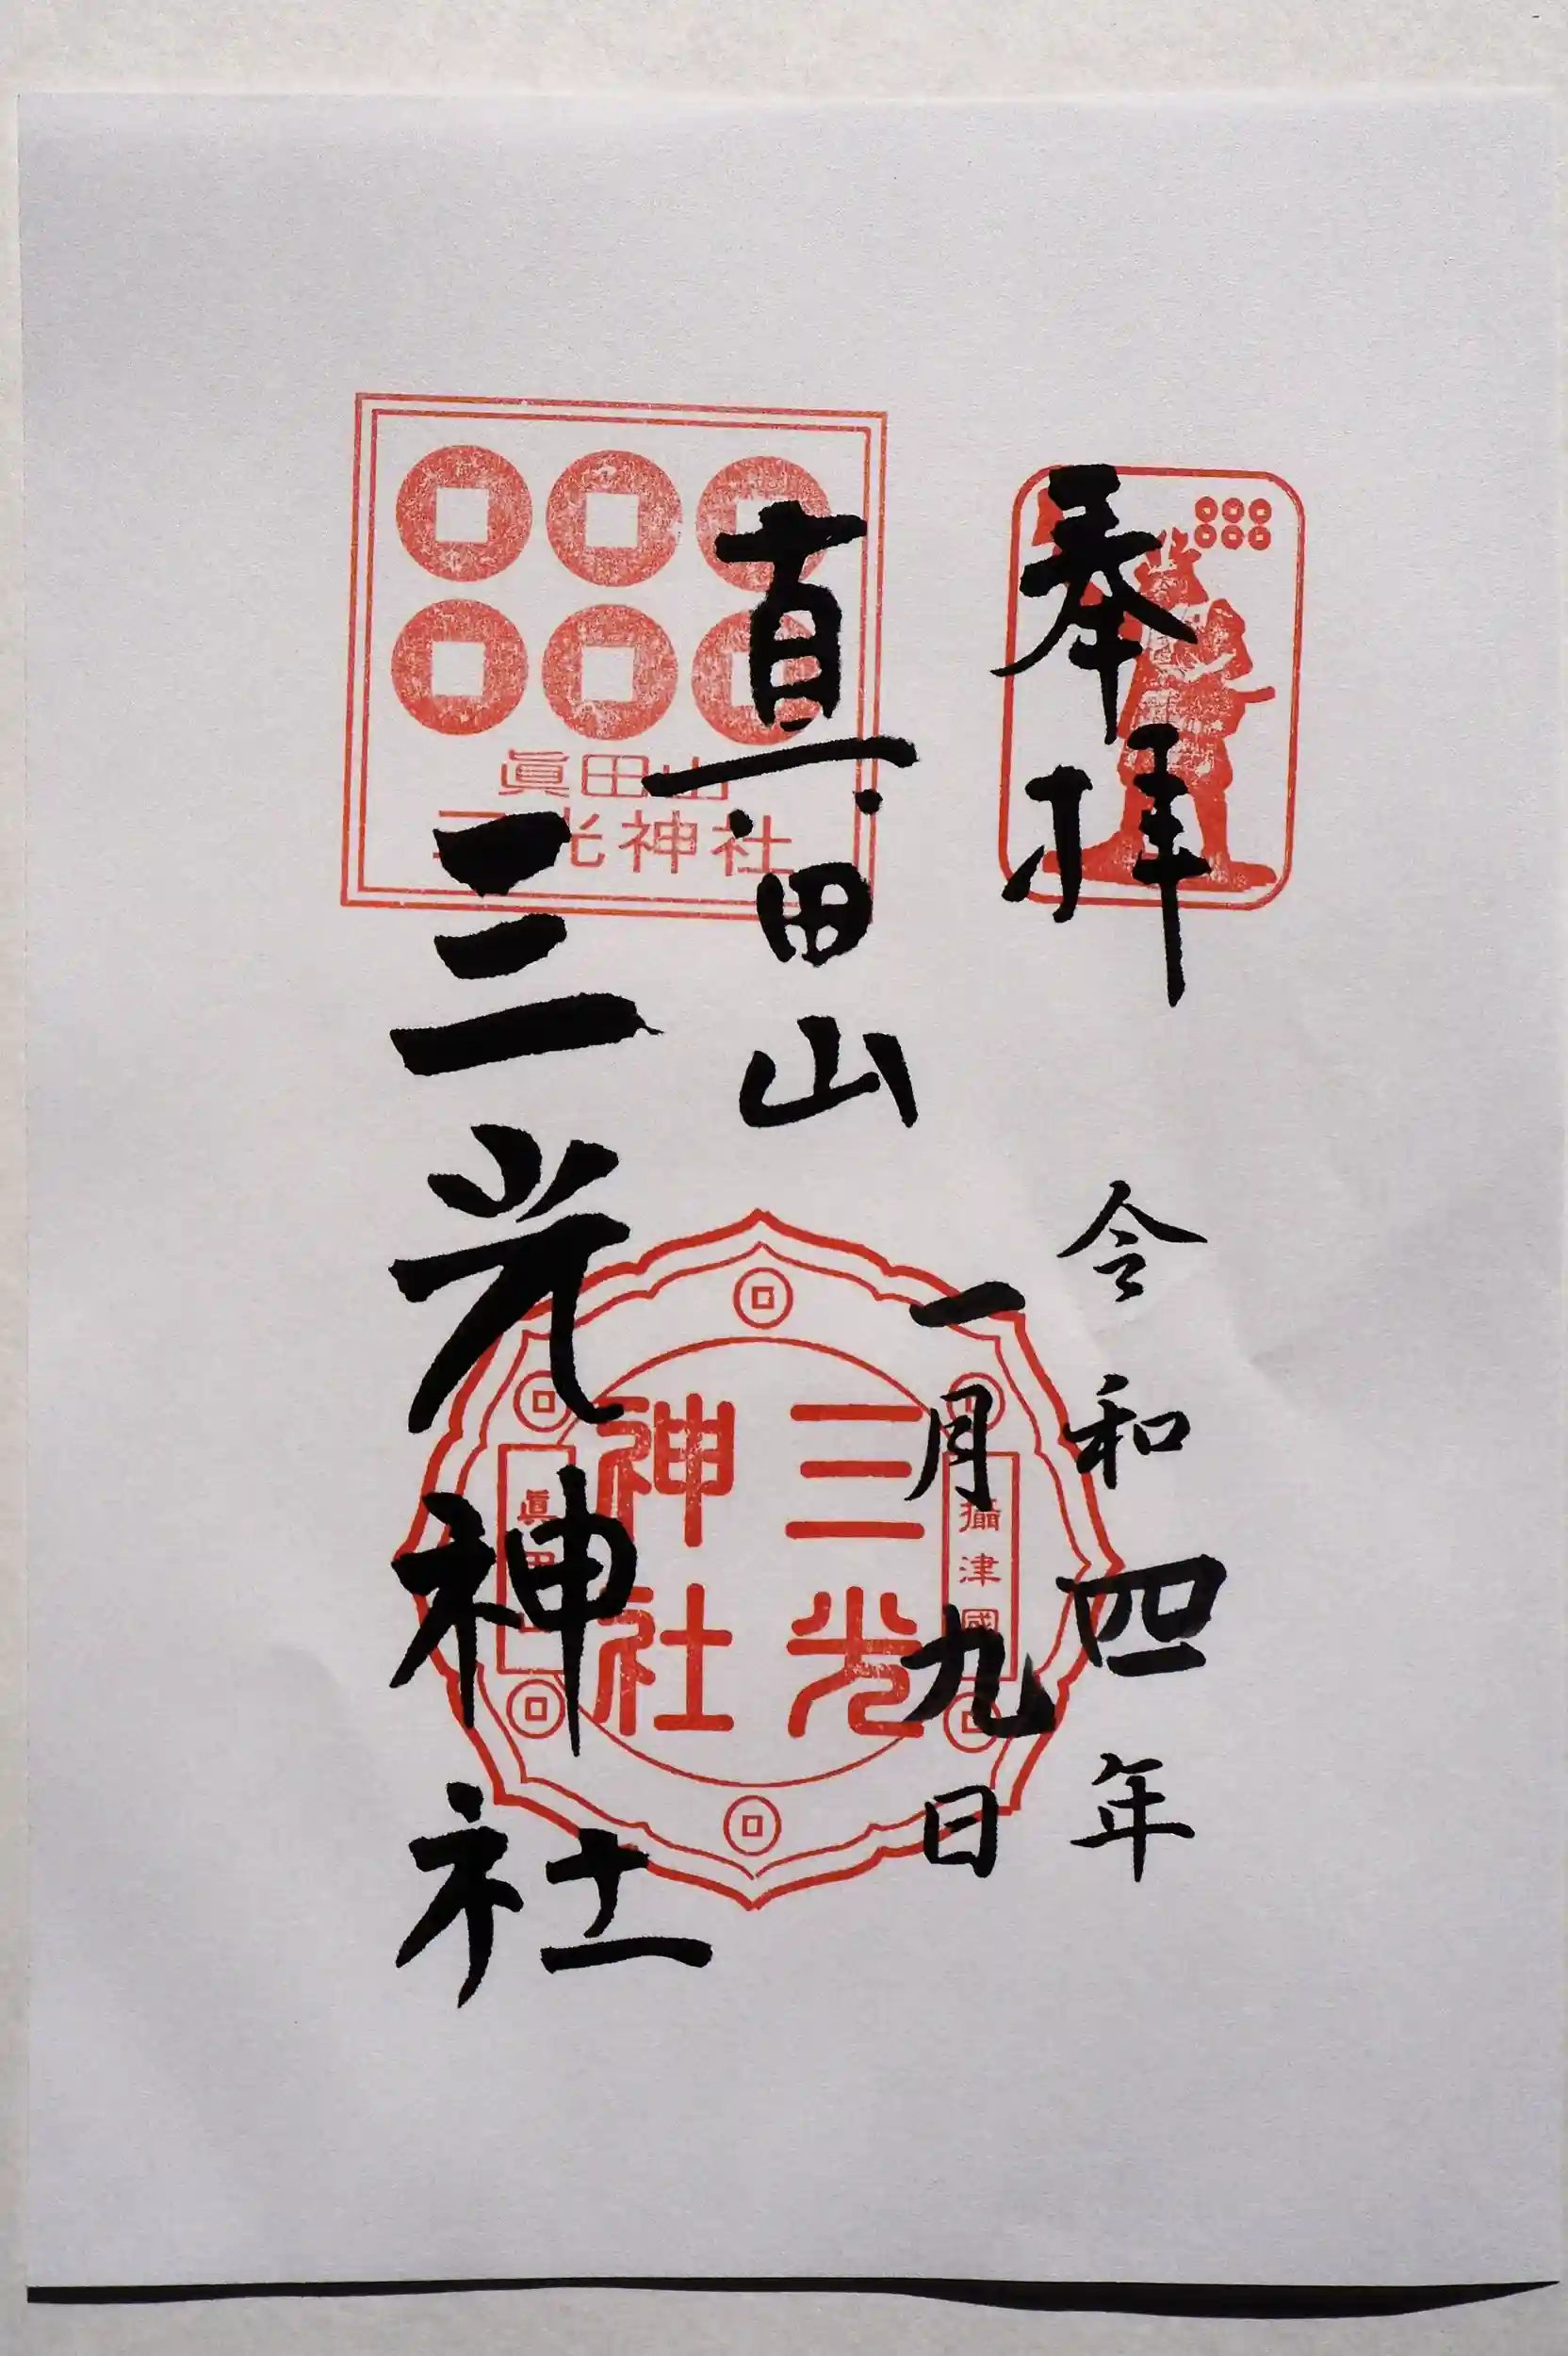 奉拝
令和四年
一月九日
真田山
三光神社
眞田山
三光神社
攝津國
三光
神社
眞田山